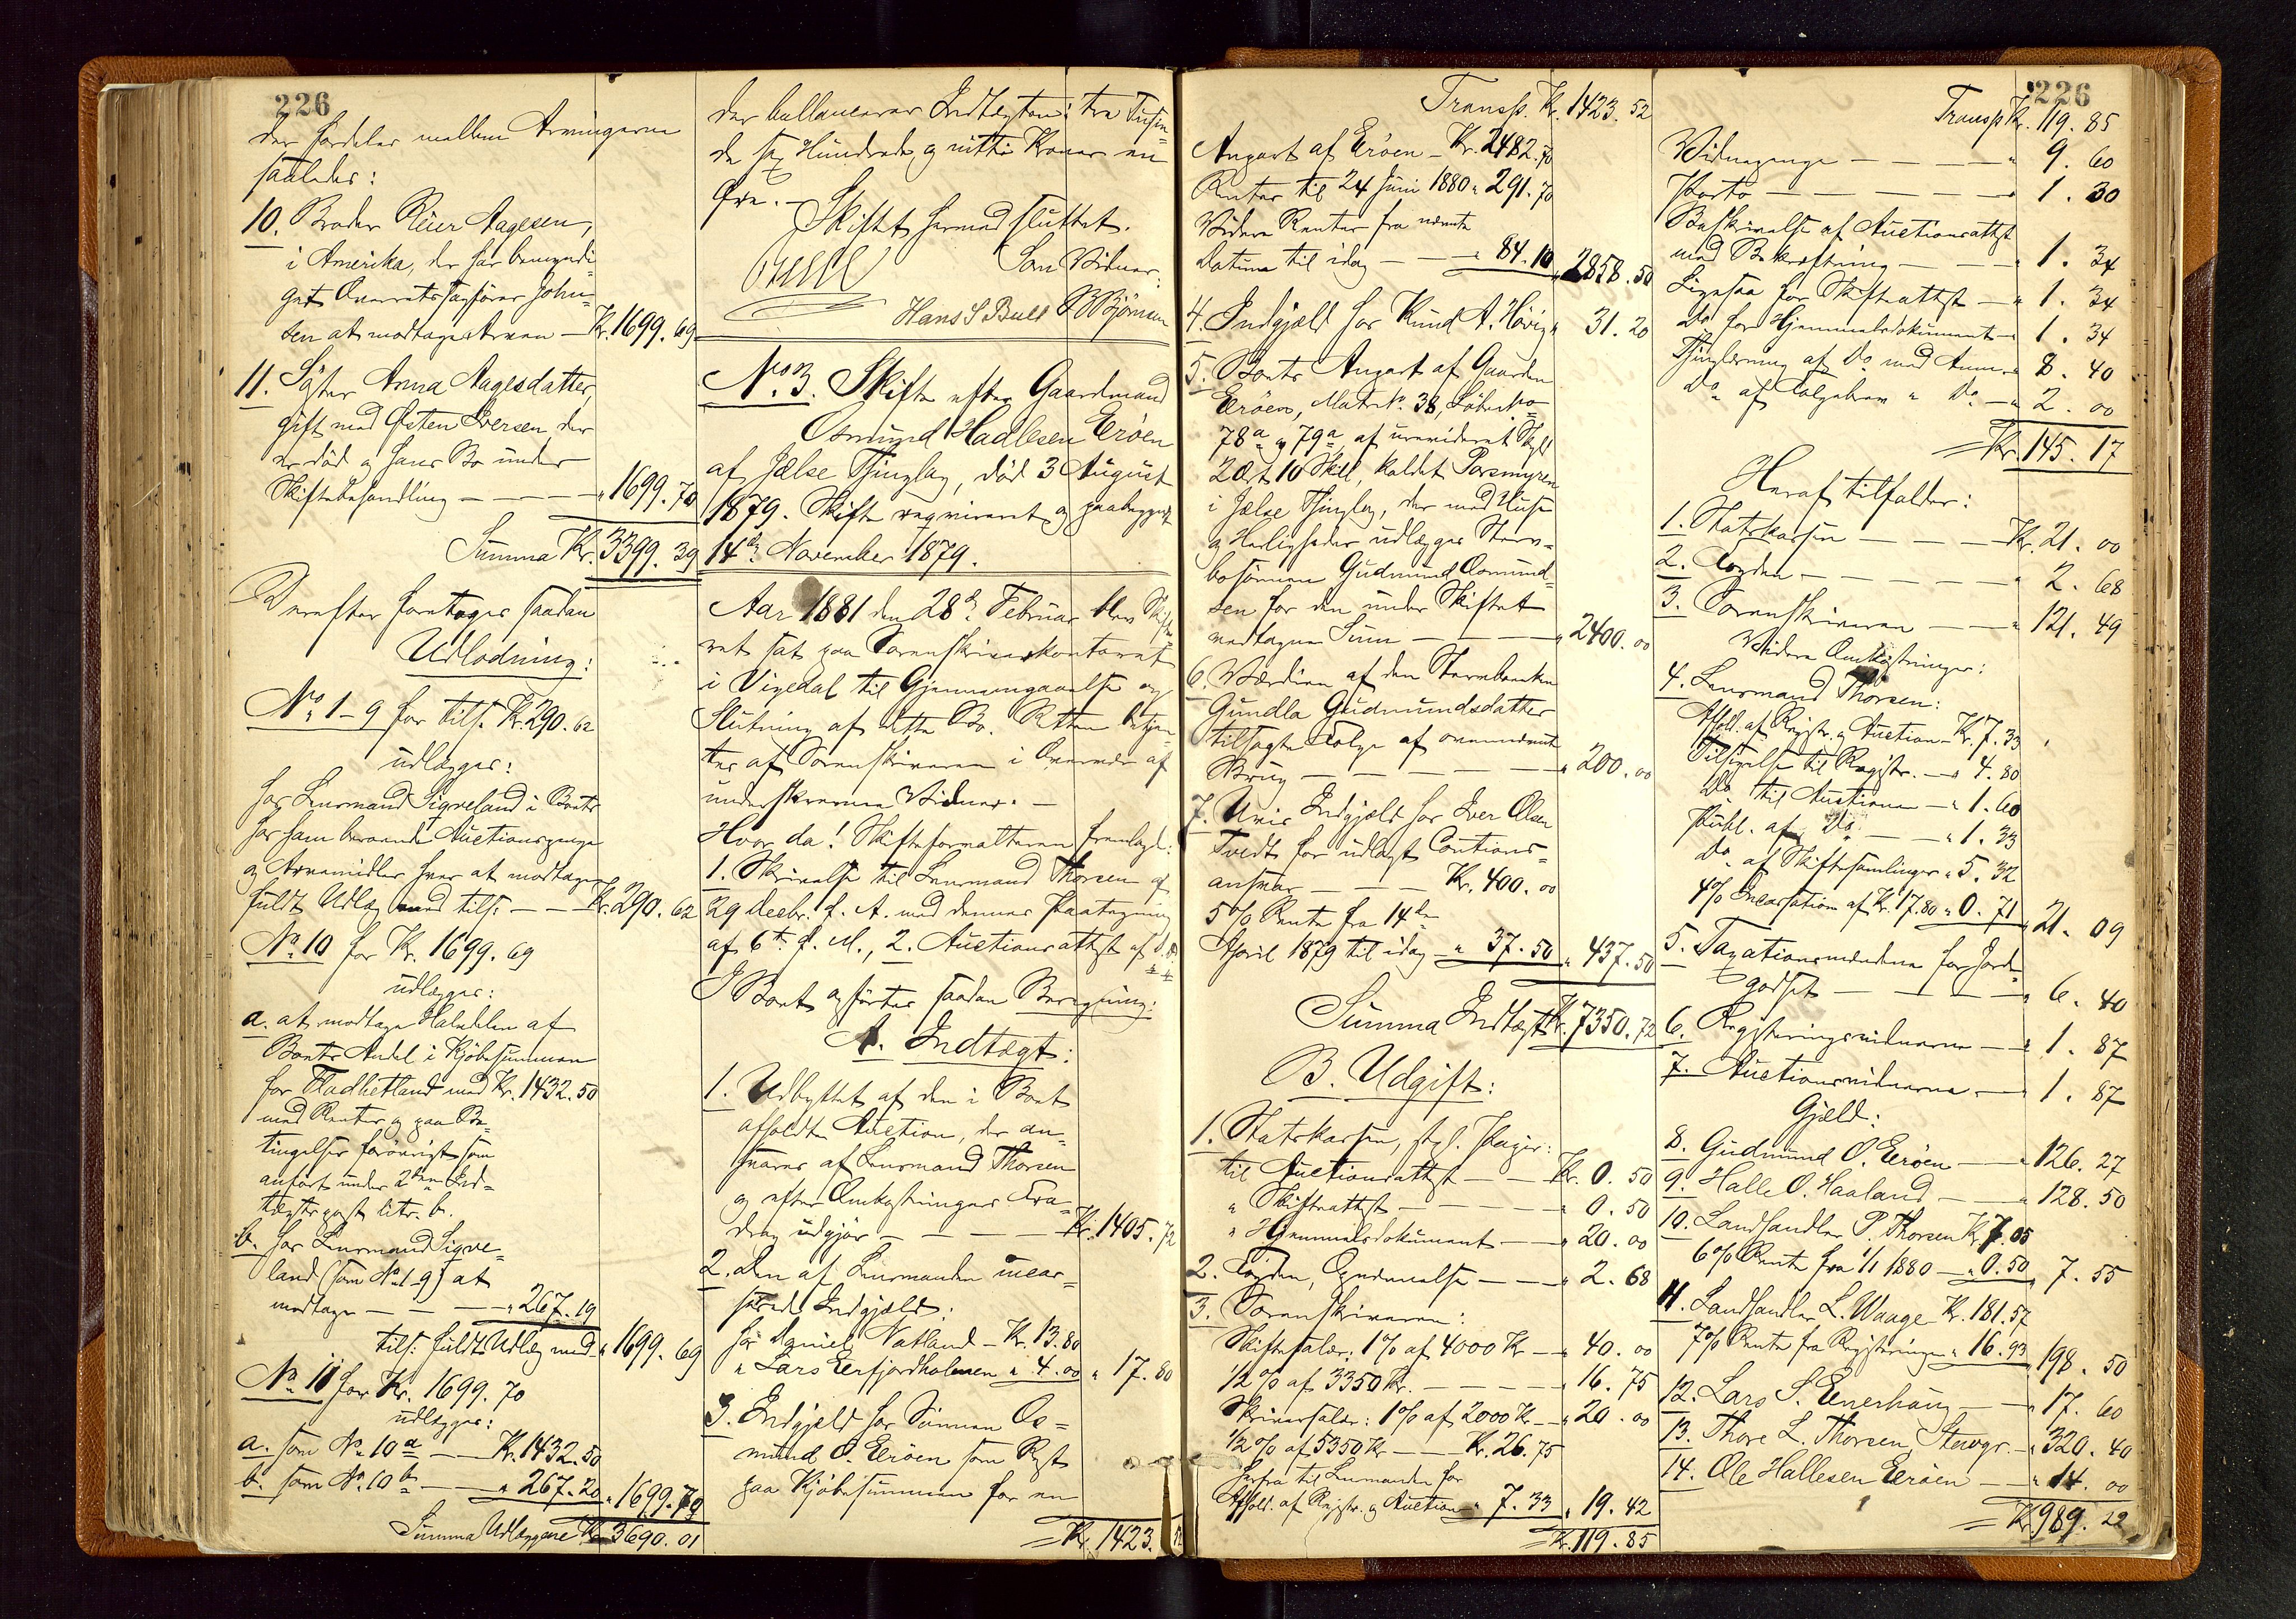 226
der fordeles mellem Arvingerne
saaledes:
10. Broder Reier Aagesen,
i Amerika, der har bemyndi-
get Overretssagfører John-
sen at modtage Arven — Kr. 1699.69
11. Søster Anna Aagesdatter,
gift med Østen Iversen der
er død og hans Bo under
Skiftebehandling — — — " 1699.70
Summa Kr. 3399.39
Derefter foretoges saadan
Udlodning:
No 1-9 for tils. Kr. 290.62
udlægges:
hos Lensmand Sigveland i Boets
hos ham beroende Auctionspenge
og Arvemidler hver at modtage
fuldt Udlæg med tils. — — Kr. 290.62
No 10 for Kr. 1699.69
udlægges:
a. at modtage Halvdelen af
Boets Andel i Kjøbesummen
for Fladhetland med Kr. 1432.50
med Renter og paa Be-
tingelser forøvrigt som
anført under 2den Ind-
tægtspost litr. b.
b. hos Lensmand Sigve-
land (som No 1-9) at
modtage — — — " 267.19
tils. fuldt Udlæg med " 1699.69
No 11 for Kr. 1699.70
udlægges:
a. som No 10 a — Kr. 1432.50
b. som No 10 b — " 267.20 " 1699.70
Summa Udlæggene Kr. 3690.01
der ballancerer Indtægten: tre Tusin-
de sex Hundrede og nitti Kroner en
Øre. —
Skiftet hermed sluttet.
Som Vidner:
Hans S Bull B Bjørnsen
No. 3. Skifte efter Gaardmand
Osmund Hadlesen Erøen
af Jælse Thinglag, død 3 August
1879. Skifte reqvireret og paabegyndt
14de November 1879.
Aar 1881 den 28de Februar blev Skifte-
ret sat paa Sorenskriverkontoret
i Vigedal til Gjennemgaaelse og
Slutning af dette Bo. Retten betjen-
tes af Sorenskriveren i Overvær af
underskrevne Vidner. —
Hvor da! Skifteforvalteren fremlagde:
1. Skrivelse til Lensmand Thorsen af
29 Decbr. f. A. med dennes Paategning
af 6te f. M., 2. Auctionsattest af
I Boet opførtes saadan Beregning:
A. Indtægt:
1. Udbyttet af den i Boet
afholdte Auction, der an-
svares af Lensmand Thorsen
og efter Omkostningers Fra-
drag udgjør — — — — Kr. 1405.72
2. Den af Lensmanden incas-
serede Indgjæld:
hos Daniel Natland — Kr. 13.80
" Lars Eerfjordholmen " 4.00 " 17.80
3. Indgjæld hos Sønnen Os-
mund O. Erøen som Rest
paa Kjøbesummen for en
Kr. 1423.52
Transp. Kr. 1423.52
Anpart af Erøen — Kr. 2482.70
Renter til 24 Juni 1880 " 291.70
Videre Renter fra nævnte
Datum til idag — — " 84.10 " 2858.50
4. Indgjæld hos Knud A. Høvig " 31.20
5. Boets Anpart af Gaarden
Erøen, Matr. No. 38, Løbe No
78a og 79a af urevideret Skyld
2 Ort 10 Skill, kaldet Porsmyren
i Jælse Thinglag, der med Huse
og Herligheder udlægges Sterv-
bosønnen Gudmund Osmund-
sen for den under Skiftet
vedtagne Sum — — — " 2400.00
6. Værdien af den Stervbenken
Gundla Gudmundsdatter
tilsagte Folge af ovennævnte
Brug — — — — — " 200.00
7. Uvis Indgjæld hos Iver Olsen
Tvedt for udlagt Cautions-
ansvar — — — Kr. 400.00
5% Rente fra 14de
April 1879 til idag — " 37.50 " 437.50
Summa Indtægt Kr. 7350.72
B. Udgift:
1. Statskassen, stpl. Papir:
til Auctionsattest — — Kr. 0.50
" Skifteattest — — — — " 0.50
" Hjemmelsdokument — — " 20.00
2. Fogden, — — " 2.68
3. Sorenskriveren:
Skiftesalær: 1% af 4000 Kr — " 40.00
1/2% af 3350 Kr. — — — " 16.75
Skriversalær: 1% af 2000 Kr — " 20.00
1/2% af 5350 Kr — — Kr. 26.75
herfra til Lensmanden for
Afhold. af Registr. og Auction " 7.33 " 19.42
Kr. 119.85
226
Transp. Kr. 119.85
Vidnepenge — — — — " 9.60
Porto — — — — — " 1.30
Beskrivelse af Auctionsattest
med Bekræftning — — — " 1.34
Ligesaa for Skifteattest — " 1.34
Do for Hjemmelsdokument — " 1.34
Thinglæsning af Do med Anm. " 8.40
Do af Folgebrev " Do — " 2.00
Kr. 145.17
Heraf tilfalder:
1. Statskassen — — — Kr. 21.00
2. Fogden — — — — — " 2.68
3. Sorenskriveren — — " 121.49
Videre Omkostninger:
4. Lensmand Thorsen:
Afhold. af Registr. og Auction — Kr. 7.33
Tilsigelse til Registr. — " 4.80
Do til Auctionen — " 1.60
Publ. af Do — " 1.33
Do af Skiftesamlinger " 5.32
4% Incassation af Kr. 17.80 " 0.71 " 21.09
5. Taxationsmændene for Jorde-
godset — — — — " 6.40
6. Registreringsvidnerne — " 1.87
7. Auctionsvidnerne — " 1.87
Gjæld:
8. Gudmund O. Erøen — " 126.27
9. Halle O. Haaland — — " 128.50
10. Landhandler P. Thorsen Kr 7.05
6% Rente fra 1/1 1880 — " 0.50 " 7.55
11. Landhandler L. Waage Kr. 181.57
7% Rente fra Registreringen " 16.93 " 198.50
12. Lars S. Enerhaug — — " 17.60
13. Thore L. Thorsen, — " 320.40
14. Ole Hallesen Erøen — — " 14.00
Kr. 989.22